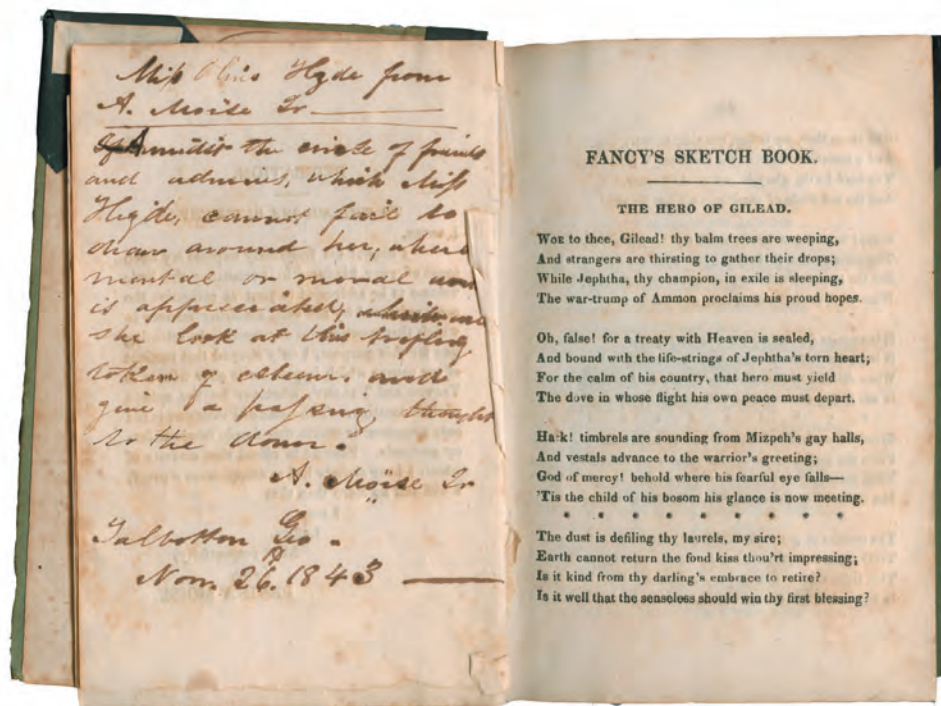 Miss Olivia Hyde from
A. Moïse Jr
Amidst the circle of friends
and admirers, which Miss
Hyde, cannot fail to
draw around her, where
mental or moral
is appreciated,
she look at this trifling
token of esteem, and
give a passing thought
to the donor.
A. Moïse Jr
Talbotton Geo.
Nov. 26. 1843
FANCY'S SKETCH BOOK.
THE HERO OF GILEAD.
Woe to thee, Gilead! thy balm trees are weeping,
And strangers are thirsting to gather their drops;
While Jephtha, thy champion, in exile is sleeping,
The war-trump of Ammon proclaims his proud hopes.
Oh, false! for a treaty with Heaven is sealed,
And bound with the life-strings of Jephtha's torn heart;
For the calm of his country, that hero must yield
The dove in whose flight his own peace must depart.
Hark! timbrels are sounding from Mizpeh's gay halls,
And vestals advance to the warrior's greeting;
God of mercy! behold where his fearful eye falls—
'Tis the child of his bosom his glance is now meeting.
* * * * * * * * *
The dust is defiling thy laurels, my sire;
Earth cannot return the fond kiss thou'rt impressing;
Is it kind from thy darling's embrace to retire?
Is it well that the senseless should win thy first blessing?